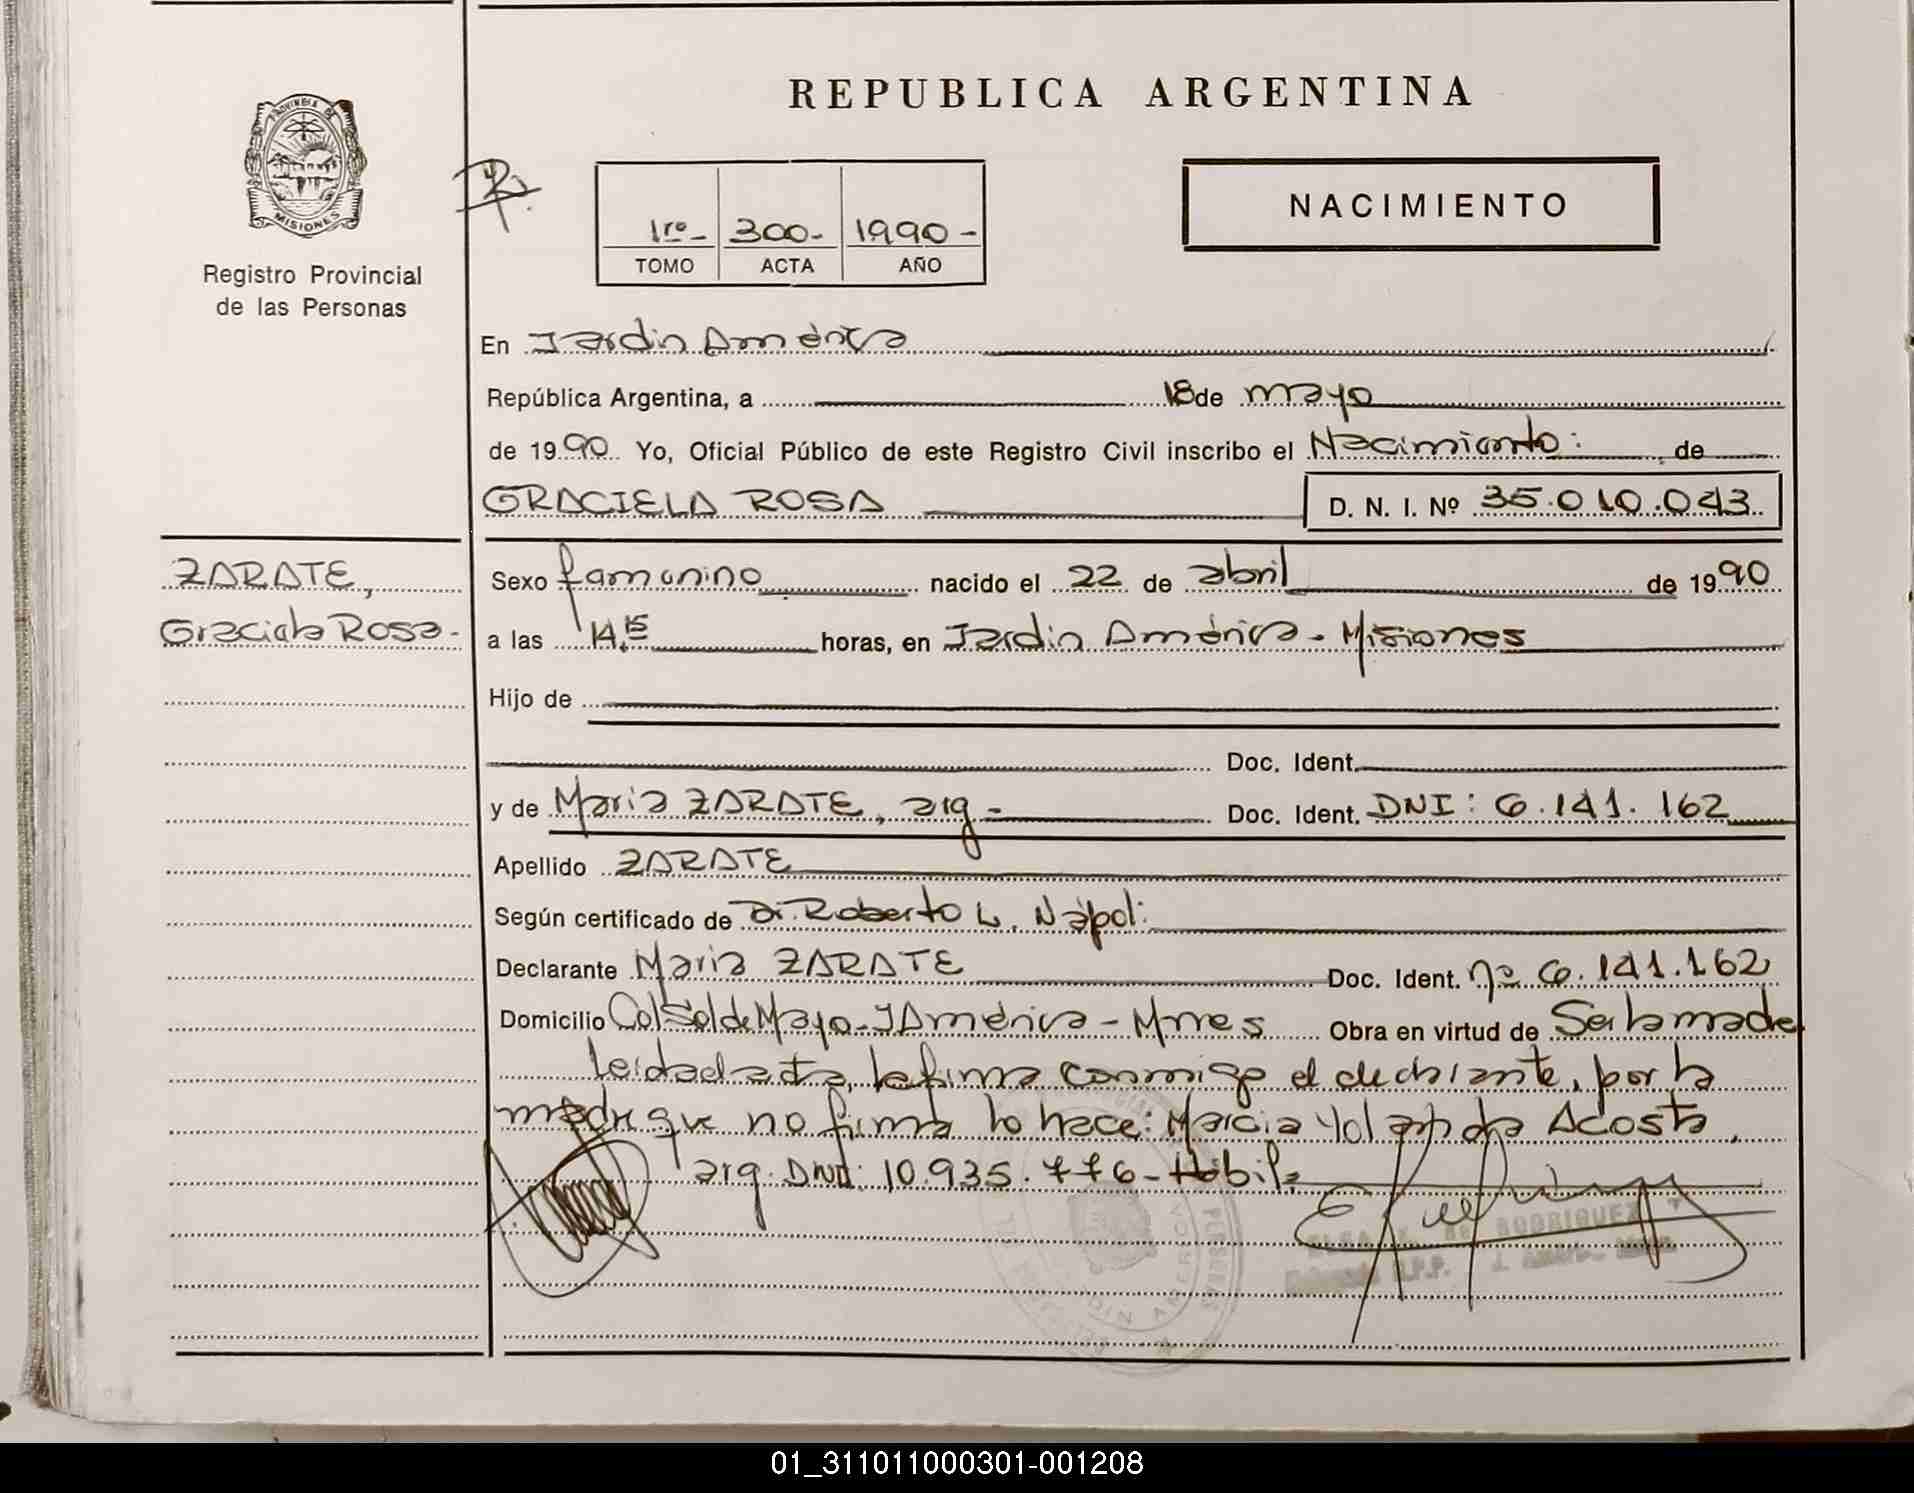 REPUBLICA ARGENTINA
PROVINCIA DE
MISIONES
Registro Provincial
de las Personas
1ro- 300- 1990-
TOMO ACTA AÑO
NACIMIENTO
En Jardin América
República Argentina, a 18 de mayo
de 1990 Yo, Oficial Público de este Registro Civil inscribo el Nacimiento: de
GRACIELA ROSA D. N. I. Nº 35.010.043
ZARATE,
Graciela Rosa-
Sexo femenino nacido el 22 de abril de 1990
a las 14.15 horas, en Jardin América - Misiones
Hijo de
Doc. Ident.
y de Maria ZARATE, arg - Doc. Ident. DNI: 6.141.162
Apellido ZARATE
Según certificado de Dr. Roberto L. Nápoli
Declarante Maria ZARATE Doc. Ident. nº 6.141.162
Domicilio Col Sol de Mayo - J América - Mnes Obra en virtud de Ser la madre
Leida el acta, la firma conmigo el declarante, por la
madre que no firma lo hace: Marcia Yolanda Acosta,
arg. DNI: 10.935.776 - Hábil.
RODRIGUEZ
R.P.P.
PERSONAS
JARDIN AMERICA
01_311011000301-001208